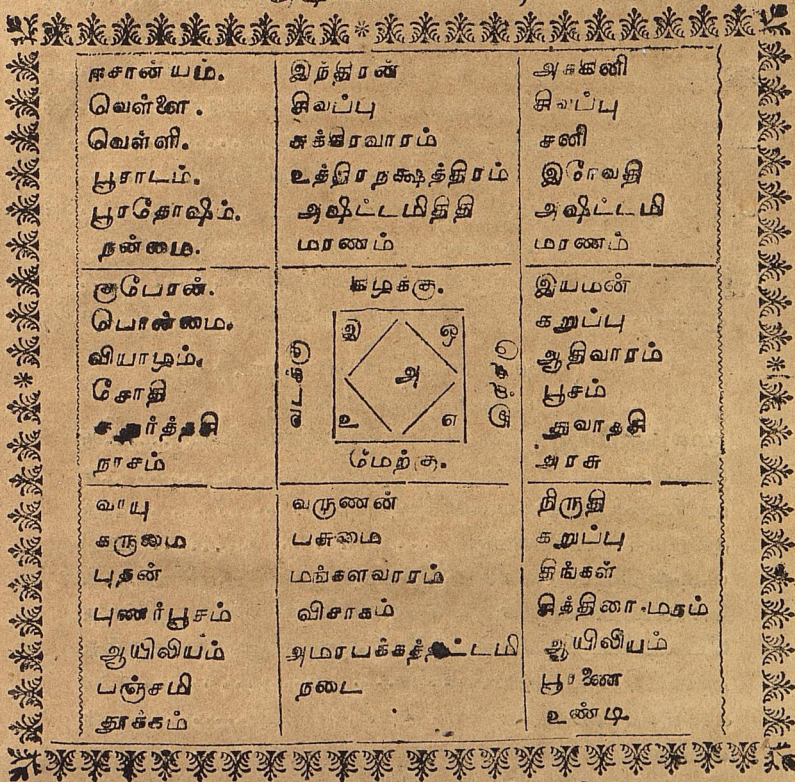 ஈசான்யம்.
வெள்ளை.
வெள்ளி.
பூசாடம்.
பூரதோஷிம்.
நன்மை.
இந்திரன்
சிவப்பு
சுக்கிரவாரம்
உத்திரநக்ஷத்திரம்
அஷிட்டமிதிதி
மரணம்
அக்கனி
சிவப்பு
சனி
இரேவதி
அஷிட்டமி
மரணம்
குபேரன்.
பொன்மை.
வியாழம்.
சோதி
நாசம்
கிழக்கு.
வடக்கு
இ
ஒ
அ
உ
எ
மேற்கு.
இயமன்
கறுப்பு
ஆதிவாரம்
பூசம்
துவாதசி
அரசு
வாயு
கருமை
புதன்
புணர்பூசம்
ஆயிலியம்
பஞ்சமி
தூக்கம்
வருணன்
பசுமை
மங்களவாரம்
விசாகம்
நடை
நிருதி
கறுப்பு
திங்கள்
சித்திரை-மகம்
ஆயிலியம்
உண்டி